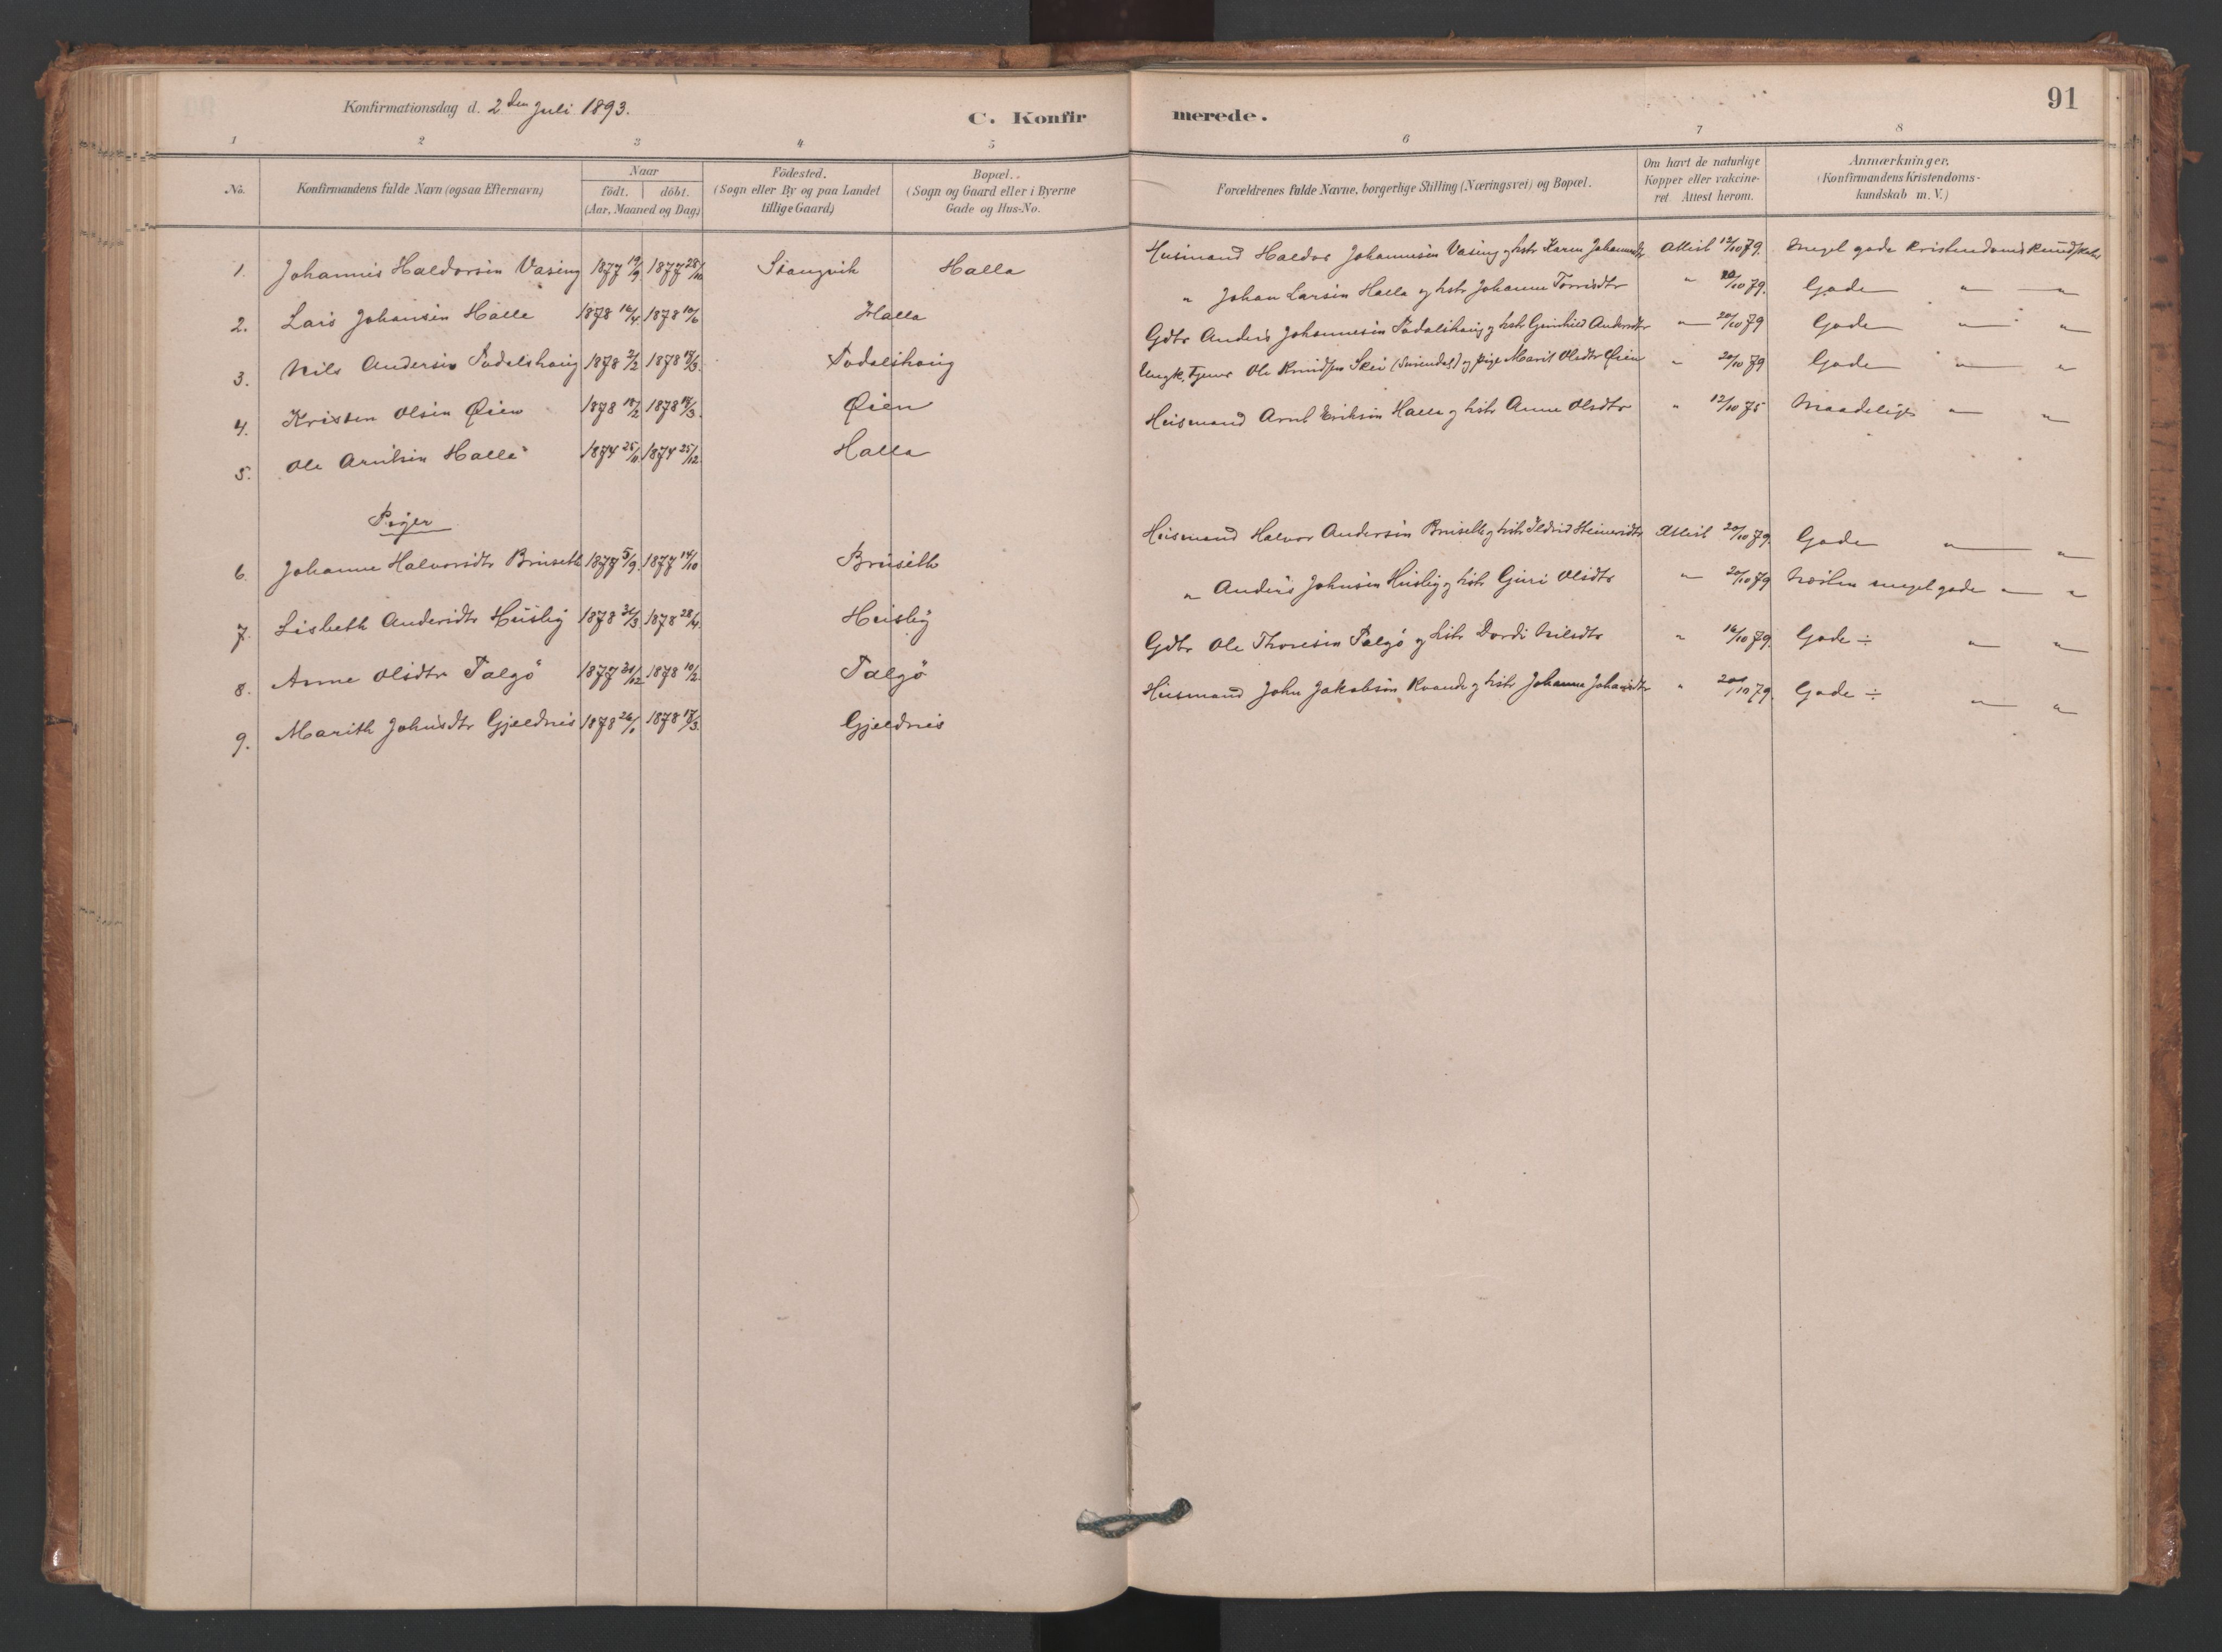 91
Konfirmationsdag d. 2den Juli 1893.
C. Konfirmerede.
1 2 3 4 5 6 7 8
No. Konfirmandens fulde Navn (ogsaa Efternavn) Naar födt. döbt. (Aar, Maaned og Dag) Födested. (Sogn eller By og paa Landet tillige Gaard) Bopæl. (Sogn og Gaard eller i Byerne Gade og Hus-No. Forældrenes fulde Navne, borgerlige Stilling (Næringsvei) og Bopæl. Om havt de naturlige Kopper eller vakcineret. Attest herom. Anmærkninger. (Konfirmandens Kristendomskundskab m. V.)
1. Johannes Haldorsen Vaseng 1877 19/9 1877 28/10 Stangvik Halla Husmand Haldor Johannesen Vaseng og hstr Karen Johannesdtr Attest 12/10 79. Meget gode Kristendomskundskaber
2. Lars Johansen Halle 1878 16/4 1878 10/6 Halla " Johan Larsen Halla og hstr Johanne Torresdtr " 20/10 79. Gode " "
3. Nils Andersen Todalshaug 1878 2/2 1878 17/3. Todalshaug Gdbr Anders Johannesen Todalshaug og hstr Gunhild Andersdtr " 20/10 79 Gode " "
4. Kristen Olsen Øien 1878 18/2 1878 17/3. Øien Ungk. Tjener Ole Knudsen Skei (Surendal) og pige Marit Olsdtr Øien " 20/10 79 Gode " "
5. Ole Arntsen Halle 1874 25/11 1874 25/12. Halla Husmand Arnt Eriksen Halla og hstr Anne Olsdtr " 12/10 75 Maadelige " "
Piger
6. Johanne Halvorsdtr Bruseth 1877 5/9. 1877 14/10 Bruseth Husmand Halvor Andersen Bruseth og hstr Ildrid Steinersdtr Attest 20/10 79. Gode " "
7. Lisbeth Andersdtr Husby 1878 31/3 1878 28/4. Husby " Anders Johnsen Husby og hstr Guri Olsdtr " 20/10 79 Næsten meget gode " "
8. Anne Olsdtr Talgö 1877 31/12 1878 10/2. Talgö Gdbr Ole Thoresen Talgö og hstr Dordi Nilsdtr " 16/10 79. Gode ÷ " "
9. Marith Johnsdtr Gjeldnes 1878 26/1 1878 17/3. Gjeldnes Husmand John Jakobsen Kvande og hstr Johanne Johansdtr " 20/10 79. Gode ÷ " "